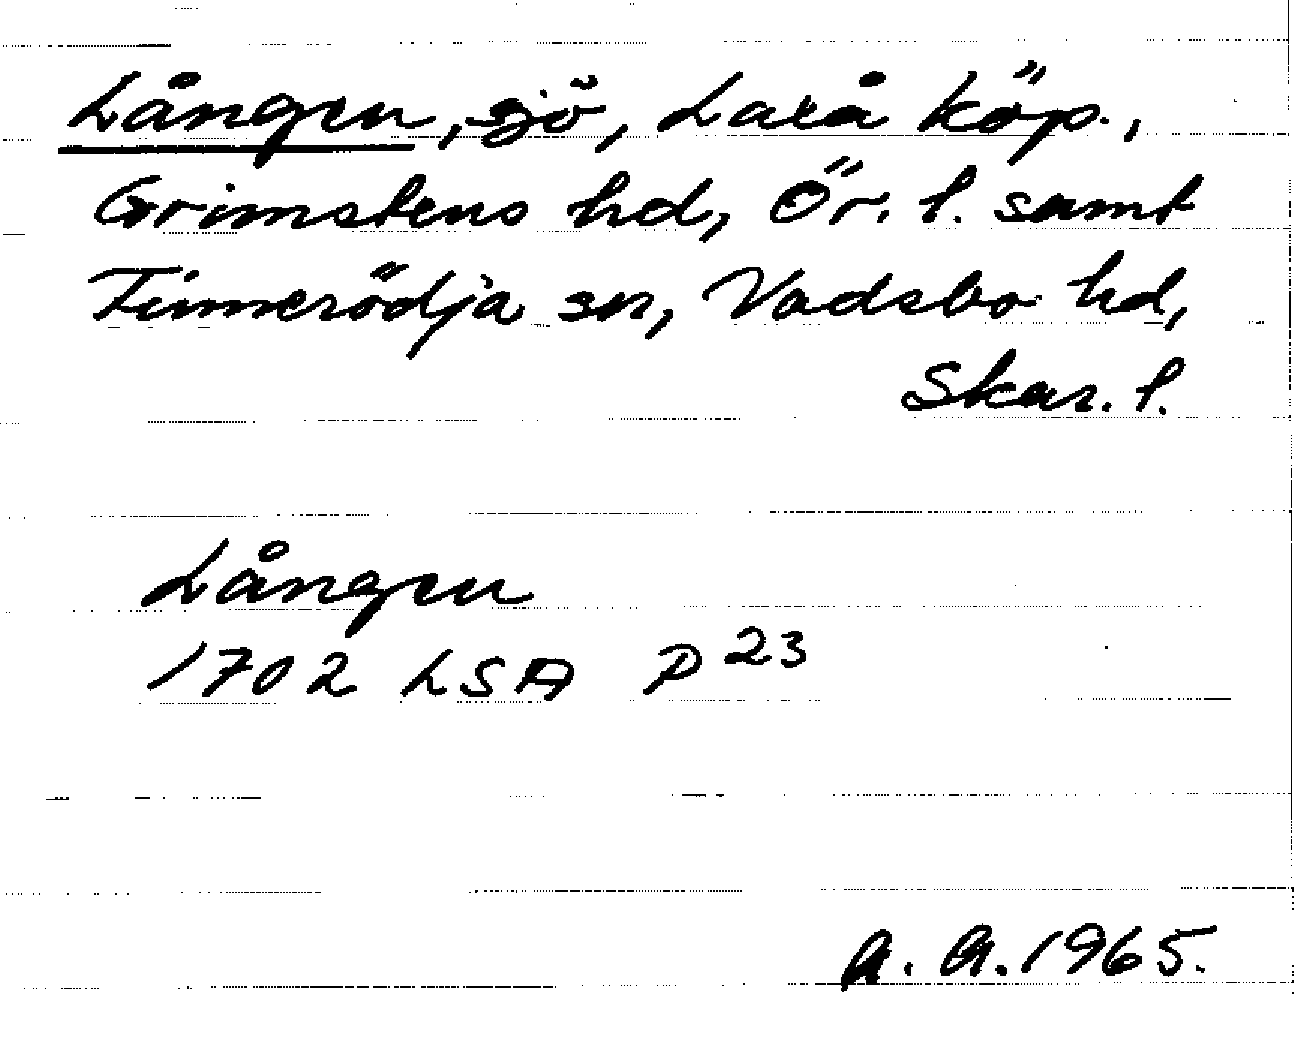 Lången, sjö, Laxå köp.,
Grimstens hd, Ör. l. samt
Tivnerödja sn, Vadsbo hd,
Skar. l.
Lången
1702 LSA P 23
A. A. 1965.